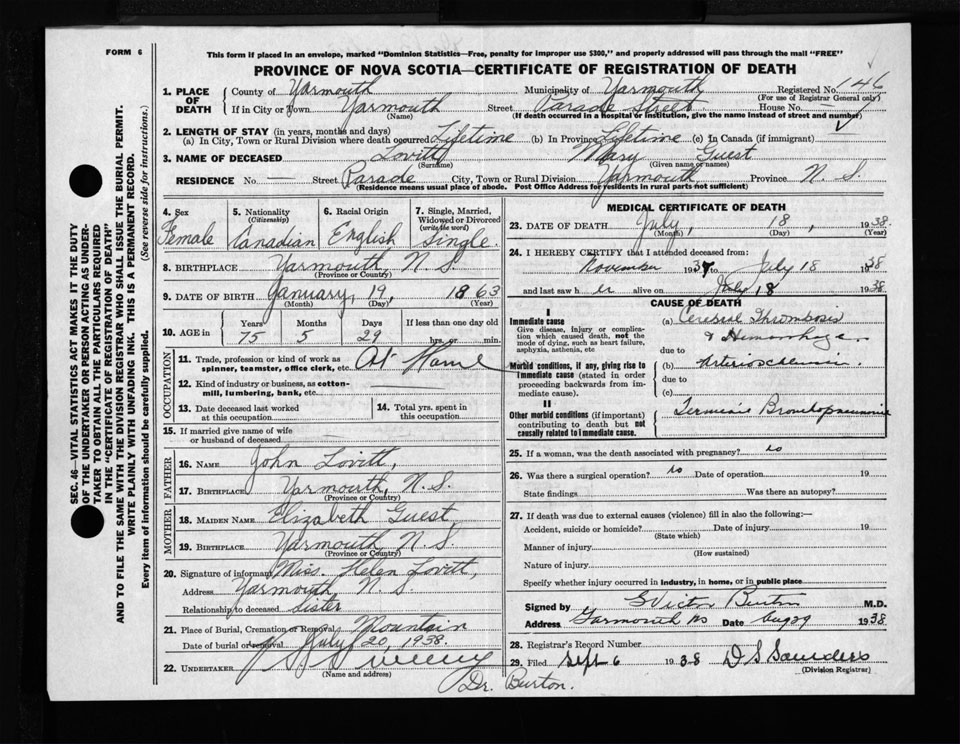 FORM 6
This form if placed in an envelope, marked "Dominion Statistics—Free, penalty for improper use $300," and properly addressed will pass through the mail "FREE"
PROVINCE OF NOVA SCOTIA—CERTIFICATE OF REGISTRATION OF DEATH
1. PLACE OF DEATH County of Yarmouth Municipality of Yarmouth Registered No. 146
(For use of Registrar General only)
If in City or Town Yarmouth Street Parade Street House No. —
(Name) (If death occurred in a hospital or institution, give the name instead of street and number)
2. LENGTH OF STAY (in years, months and days)
(a) In City, Town or Rural Division where death occurred Lifetime (b) In Province Lifetime (c) In Canada (if immigrant)
3. NAME OF DECEASED Lovitt Mary Guest
(Surname) (Given name or names)
RESIDENCE No. — Street Parade City, Town or Rural Division Yarmouth Province N. S.
(Residence means usual place of abode. Post Office Address for residents in rural parts not sufficient)
4. Sex Female
5. Nationality (Citizenship) Canadian
6. Racial Origin English
7. Single, Married, Widowed or Divorced (write the word) Single.
8. BIRTHPLACE Yarmouth, N. S.
(Province or Country)
9. DATE OF BIRTH January, 19, 1863
(Month) (Day) (Year)
10. AGE in Years 75 Months 5 Days 29 If less than one day old hrs. or min.
OCCUPATION
11. Trade, profession or kind of work as spinner, teamster, office clerk, etc. At Home
12. Kind of industry or business, as cotton-mill, lumbering, bank, etc.
13. Date deceased last worked at this occupation
14. Total yrs. spent in this occupation
15. If married give name of wife or husband of deceased —
FATHER
16. NAME John Lovitt,
17. BIRTHPLACE Yarmouth, N. S.
(Province or Country)
MOTHER
18. MAIDEN NAME Elizabeth Guest,
19. BIRTHPLACE Yarmouth, N. S.
(Province or Country)
20. Signature of informant Miss. Helen Lovitt,
Address Yarmouth, N. S.
Relationship to deceased Sister
21. Place of Burial, Cremation or Removal Mountain
Date of burial or removal July 20, 1938.
22. UNDERTAKER V S Sweeny
(Name and address)
Dr. Burton.
MEDICAL CERTIFICATE OF DEATH
23. DATE OF DEATH July, 18, 1938.
(Month) (Day) (Year)
24. I HEREBY CERTIFY that I attended deceased from:
November 1937 to July 18 1938
and last saw her alive on July 18 1938.
CAUSE OF DEATH
I
Immediate cause (a) Cerebral Thrombosis
Give disease, injury or complication which caused death, not the mode of dying, such as heart failure, asphyxia, asthenia, etc & Hemorrhage
due to
Morbid conditions, if any, giving rise to immediate cause (stated in order proceeding backwards from immediate cause). (b) Arteriosclerosis
due to
(c)
II
Other morbid conditions (if important) contributing to death but not causally related to immediate cause. Terminal Bronchopneumonia
25. If a woman, was the death associated with pregnancy? no
26. Was there a surgical operation? no Date of operation 19
State findings Was there an autopsy?
27. If death was due to external causes (violence) fill in also the following:—
Accident, suicide or homicide? Date of injury 19
(State which)
Manner of injury
(How sustained)
Nature of injury
Specify whether injury occurred in industry, in home, or in public place
Signed by G Victor Burton M.D.
Address Yarmouth NS Date Aug 29 1938
28. Registrar's Record Number
29. Filed Sept 6 1938 D S Saunders
(Division Registrar)
SEC. 46—VITAL STATISTICS ACT MAKES IT THE DUTY
OF THE UNDERTAKER OR PERSON ACTING AS UNDERTAKER TO OBTAIN ALL THE PARTICULARS REQUIRED
IN THE "CERTIFICATE OF REGISTRATION OF DEATH"
AND TO FILE THE SAME WITH THE DIVISION REGISTRAR WHO SHALL ISSUE THE BURIAL PERMIT.
WRITE PLAINLY WITH UNFADING INK. THIS IS A PERMANENT RECORD.
Every item of information should be carefully supplied. (See reverse side for instructions.)